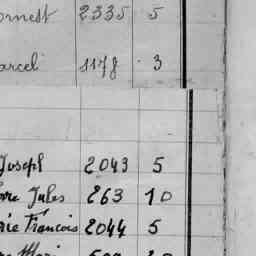 ornest 2335 5
arcel 1178 3
Joseph 2043 5
Jules 263 10
rie François 2044 5